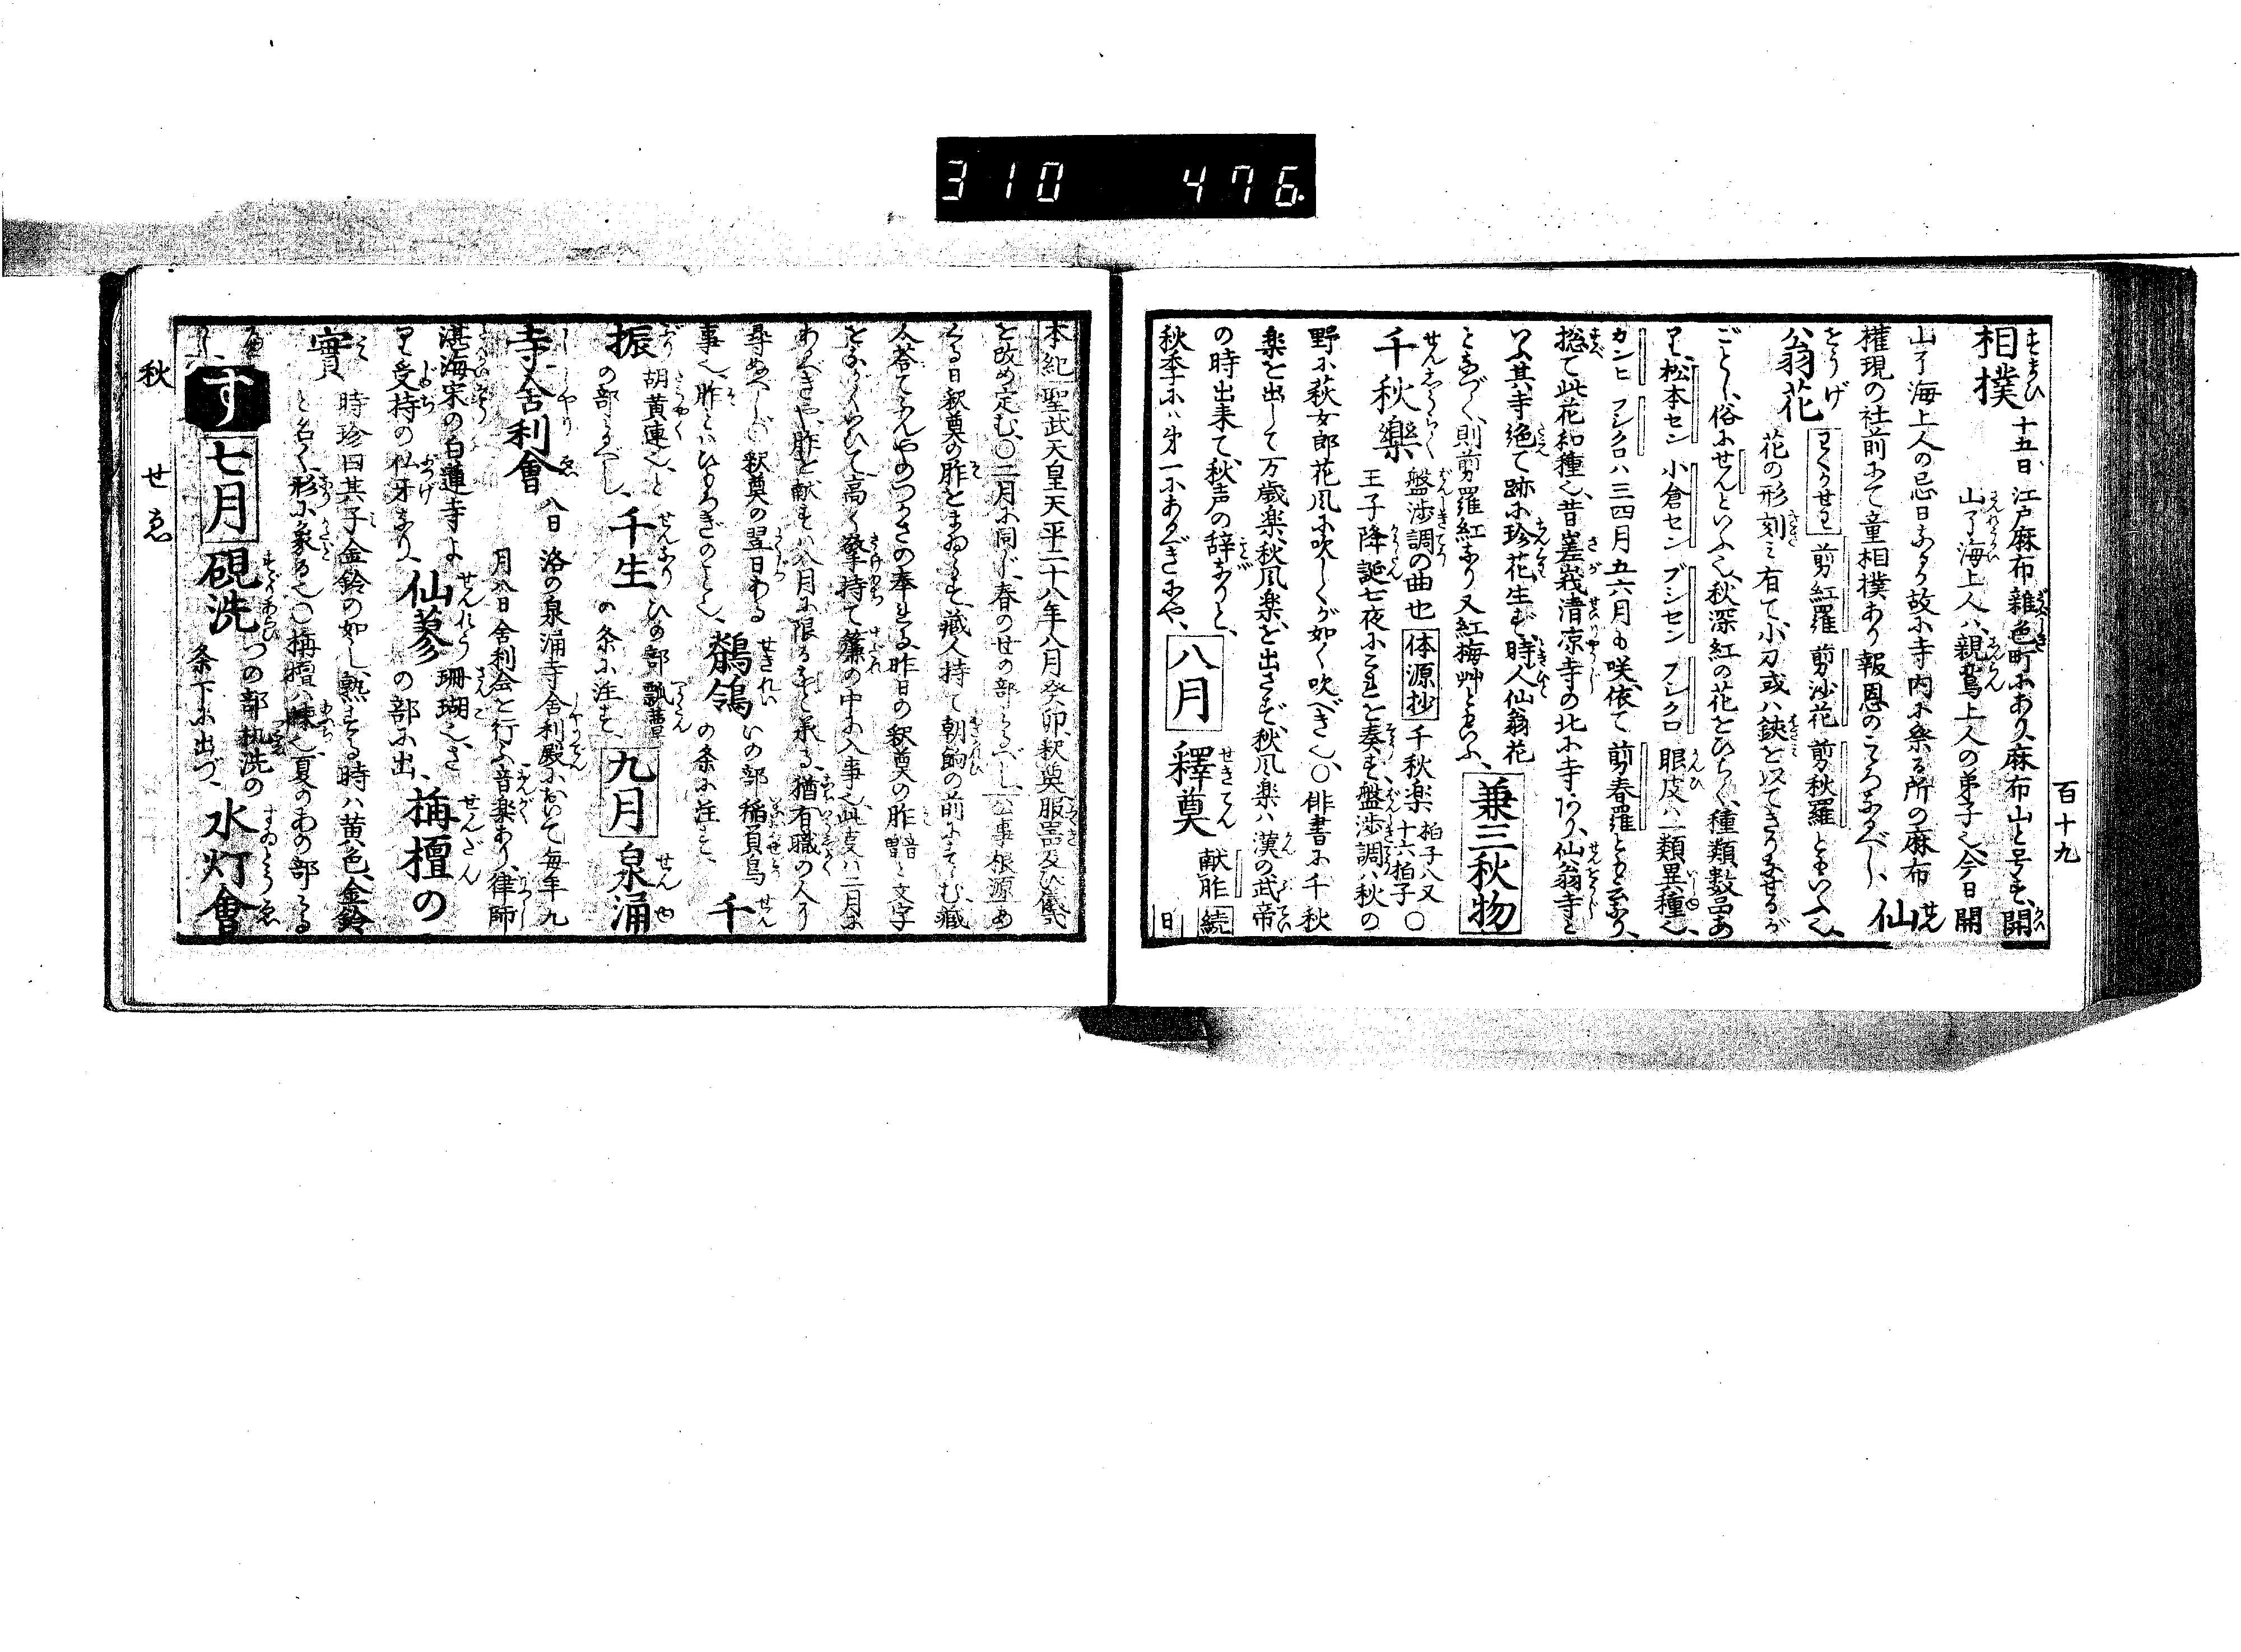 310 476
百十九
相撲 十五日、江戸麻布雑色町にあり、麻布山と号す、開
山了海上人ハ、親鸞上人の弟子也、今日開
山了海上人の忌日なり、故に寺内に祭る所の麻布
権現の社前にて童相撲あり、報恩のこころなるべし、仙
翁花 剪紅羅 剪沙花 剪秋羅ともいへり、
花の形刻ミ有て、小刀或ハ鋏を以てきりまぜるが
ごとし、俗にせんといふ也、秋深紅の花をひらく、種類数品あ
り、松本セン 小倉セン ブシセン フシクロ 眼皮ハ一類異種也、
カンヒ フシクロハ三四月五六月も咲、依て剪春羅ともいふなり、
捴て此花和種也、昔嵯峩清凉寺の北に寺あり、仙翁寺と
いふ、其寺絶て跡に珍花生ず、時人仙翁花
と名づく、則剪羅紅なり、又紅梅艸ともいふ、兼三秋物
千秋樂 盤渉調の曲也 体源抄 千秋楽 拍子八又十六拍子 〇
王子降誕七夜にこれを奏す、盤渉調ハ秋の
野に萩女郎花風に吹しくが如く吹べき也、〇俳書に千秋
楽を出して万歳楽、秋風楽を出さず、秋風楽ハ漢の武帝
の時出来て、秋声の辞なりと、
秋季にハ第一にあぐべきにや、八月 釋奠 献胙 続日
本紀 聖武天皇天平二十八年八月癸卯、釈奠服器及び儀式
を改め定む、〇二月に同じ、春のせの部にくはし 公事根源 あ
くる日釈奠の胙をまゐらす、蔵人持て朝餉の前にてよむ、蔵
人答て
をながくいひて高く擎持て簾の中に入事也、此事ハ二月に
あるべきや、胙を献ずハ八月に限るよし承る、猶有職の人に
尋ぬべし、〇釈奠の翌日ある 鶺鴒 いの部 稲負鳥
事也、胙とハひもろぎのこと也、の条に注す、千
振 胡黄連也、と
の部にくはし、千生 ひの部 瓢箪
の条に注す、九月 泉涌
寺舎利會 八日 洛の泉涌寺舎利殿において毎年九
月八日舎利会を行ふ、音楽あり、律師
湛海宋の白蓮寺よ
り受持の仏牙なり、仙蓼 珊瑚也、さ
の部に出、栴檀の
實 時珍曰其子金鈴の如し、熟する時ハ黄色、金鈴
と名く、形に象る也、〇栴檀ハ楝也、夏のあの部にくはし
す 七月 硯洗 つの部 机洗の
条下に出づ、水灯會
秋 せ ゑ